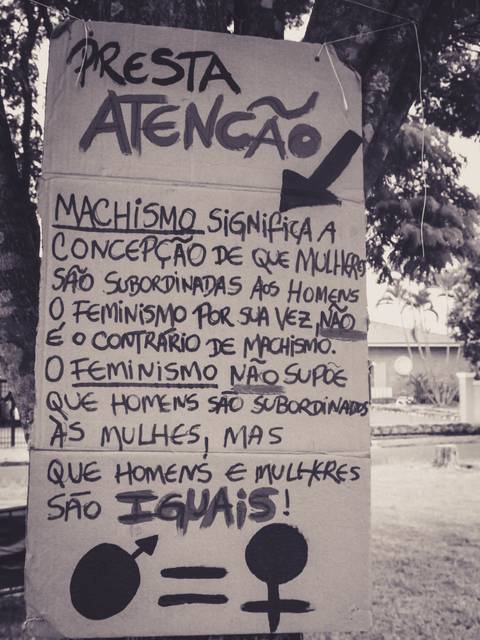 PRESTA
ATENÇÃO
MACHiSMO SiGNiFiCA A
CONCEPÇÃO DE QUE MULHERES
SÃO SUBORDINADAS AOS HOMENS
O FEMINISMO POR SUA VEZ, NÃO
É O CONTRÁRIO DE MACHISMO.
O FEMINISMO NÃO SUPÕE
QUE HOMENS SÃO SUBORDINADOS
ÀS MULHES, MAS
QUE HOMENS E MULHERES
SÃO IGUAiS!